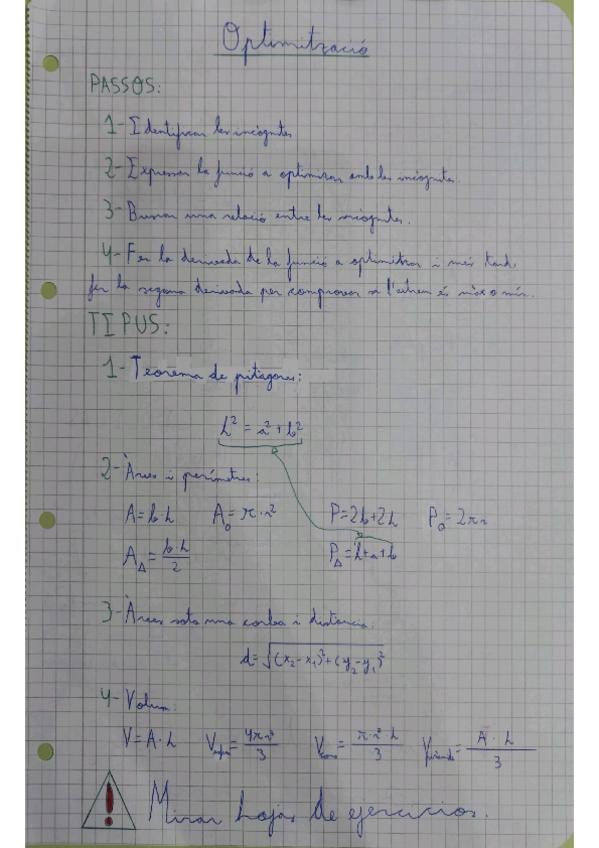 Optimització
PASSOS:
1- Identificar les incògnites
2- Expressar la funció a optimitzar amb les incògnites.
3- Buscar una relació entre les incògnites.
4- Fer la derivada de la funció a optimitzar i més tard,
fer la segona derivada per comprovar si l'extrem és màx o mín.
TIPUS:
1- Teorema de pitàgores:
h² = a² + b²
2- Àrees i perímetres:
A = b·h A○ = π·r² P = 2b+2h P○ = 2πr
A△ = b·h/2 P△ = h+a+b
3- Àrees sota una corba i distància.
d = √(x₂-x₁)²+(y₂-y₁)²
4- Volum.
V = A·h Vesfera = 4πr³/3 Vcono = π·r²·h/3 Vpiràmide = A·h/3
! Mirar hojas de ejercicios.